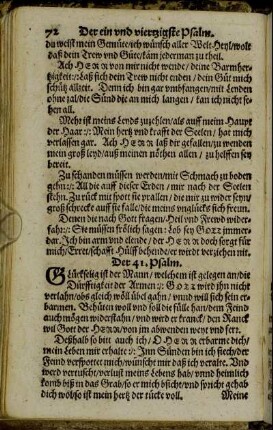 72 Der ein vnd viertzigste Psalm.
du weist mein Gemüte/ich wünsch aller Welt Heyl/wolt
daß dein Trew vnd Güte/käm jederman zu theil.
Ach HERR von mir nicht wende/deine Barmher-
tzigkeit:/: Laß sich dein Trew nicht enden/dein Güt mich
schütz allzeit. Denn ich bin gar vmbfangen/mit Leyden
ohne zal/die Sünd die an mich langen/kan ich nicht se-
hen all.
Mehr ist meins Leyds zuzehlen/als auff meim Haupt
der Haar:/: Mein hertz vnd krafft der Seelen/hat mich
verlassen gar. Ach HERR laß dir gefallen/zu wenden
mein groß leyd/auß meinen nöthen allen/zu helffen sey
bereit.
Zu schanden müssen werden/mit Schmach zu boden
gehn:/: All die auff dieser Erden/mir nach der Seelen
stehn. Zu rück mit spott sie fallen/die mir zu wider seyn/
groß schreck auff sie falle/die meins vnglücks sich frewn.
Denen die nach Gott fragen/Heil vnd Frewd wider-
fahr:/: Sie müssen frölich sagen: Lob sey GOtt jmmer-
dar. Ich bin arm vnd elende/der HERR doch sorgt für
mich/Erret/schafft Hülff behende/er wirdt verziehen nit.
Der 41. Psalm.
GLückselig ist der Mann/welchem ist gelegen an/die
Dürfftigkeit der Armen:/: GOtt wird ihn nicht
verlahn/obs gleich wöll übel gahn/vnnd will sich sein er-
barmen. Behüten woll vnd soll die füll han/dem Feind
auch mögen widerstahn/vnd wird er kranck/den Ranck
wil Gott der HERR/von jm abwenden weyt vnd ferr.
Deßhalb so bitt auch ich/O HERR erbarme dich/
mein Leben mir erhalte:/: Inn Sünden bin ich stech/der
Feind verfluchet mich/wünscht mir daß ich veralte. Vnd
werd verrucht/verlust meins Lebens hab/vnnd heimlich
komb biß in das Grab/so er mich bsicht/vnd spricht gehab
dich wol/so ist mein hertz der tücke voll.
Meine